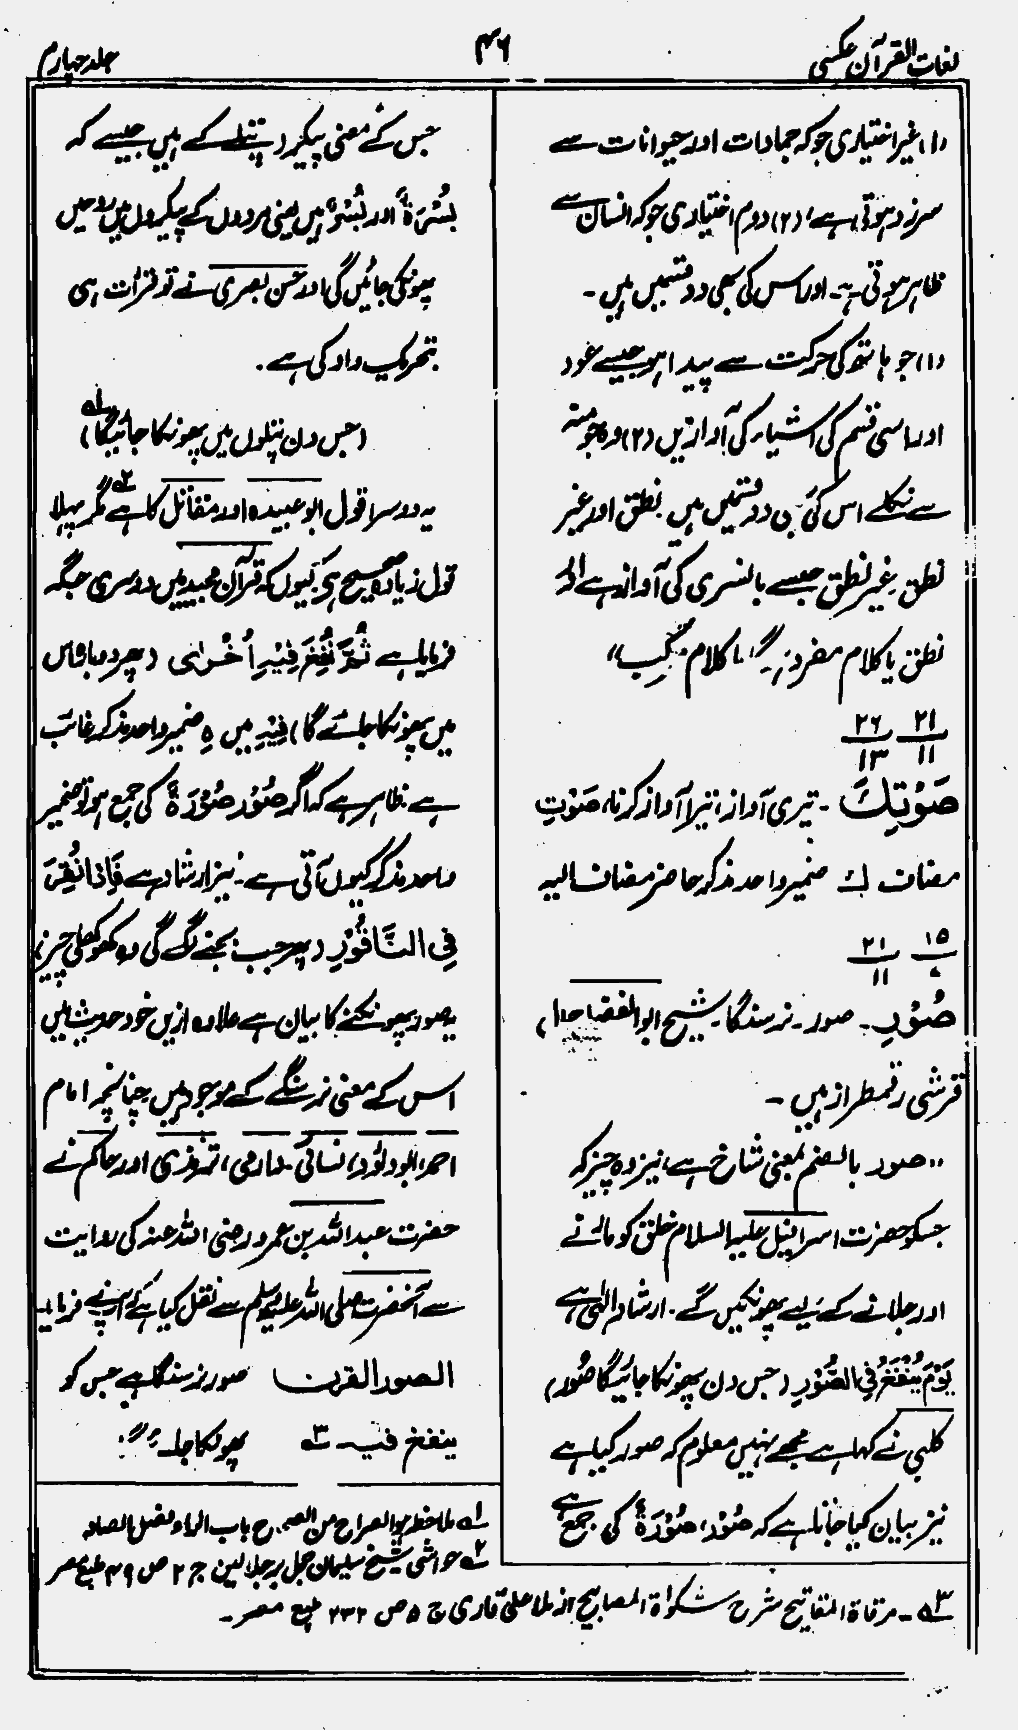 لغات القرآن عکسی
۴۶
جلد چہارم
(۱) غیر اختیاری جو کہ جمادات اور حیوانات سے
سرزد ہوتی ہے، (۲) دوم اختیاری جو کہ انسان سے
ظاہر ہوتی ہے۔ اور اس کی بھی دو قسمیں ہیں۔
(۱) جو ہاتھ کی حرکت سے پیدا ہو جیسے عود
اور اسی قسم کی اشیاء کی آوازیں (۲) وہ جو منہ
سے نکلے اس کی بھی دو قسمیں ہیں نطق اور غیر
نطق غیر نطق جیسے بانسری کی آواز ہے اور
نطق یا کلام مفرد یا کلام مرکب"
۲۱ ۲۶
۱۱ ۱۳
صَوْتِكَ ۔ تیری آواز، تیرا آواز کرنا، صَوْتِ
مضاف ك ضمیر واحد مذکر حاضر مضاف الیہ
۱۵ ۲۱
۷ ۱۱
صُوْرِ ۔ صور۔ نرسنگا۔ شیخ ابوالفضل
قرشی رقمطراز ہیں ۔
"صور بالضم بمعنی شاخ ہے، نیز وہ چیز کہ
جسکو حضرت اسرافیل علیہ السلام خلق کو مارنے
اور جلانے کے لیے پھونکیں گے۔ ارشاد الٰہی ہے
يَوْمَ يُنْفَخُ فِي الصُّوْرِ (جس دن پھونکا جائیگا صُور)
کلبی نے کہا ہے مجھے نہیں معلوم کہ صور کیا ہے
نیز بیان کیا جاتا ہے کہ صُوْر، صُوْرَةٌ کی جمع ہے
جس کے معنی پیکر (پتلے کے ہیں جیسے کہ
بُسْرَةٌ اور بُسْرٌ ہیں یعنی مردوں کے پیکروں میں روحیں
پھونکی جائیں گی اور حسن بصری نے تو قرأت ہی
بتحریک واو کی ہے ۔
(جس دن پتلوں میں پھونکا جائیگا) ۱ھ
یہ دوسرا قول ابو عبیدہ اور مقاتل کا ہے ۲ھ مگر پہلا
قول زیادہ صحیح ہے کیوں کہ قرآن مجید میں دوسری جگہ
فرمایا ہے ثُمَّ نُفِخَ فِيْهِ اُخْرٰى (پھر دوبارہ اس
میں پھونکا جائے گا) فِيْهِ میں ہٖ ضمیر واحد مذکر غائب
ہے ظاہر ہے کہ اگر صُوْر صُوْرَةٌ کی جمع ہو تو ضمیر
واحد مذکر کیوں آتی ہے۔ نیز ارشاد ہے فَاِذَا نُقِرَ
فِي النَّاقُوْرِ (پھر جب بجنے لگے گی وہ کھوکھلی چیز)
یہ صور پھونکنے کا بیان ہے علاوہ ازیں خود حدیث میں
اس کے معنی نرسنگے کے موجود ہیں چنانچہ امام
احمد، ابو داؤد، نسائی، دارمی، ترمذی اور حاکم نے
حضرت عبداللہ بن عمرو رضی اللہ عنہ کی روایت
سے آنحضرت صلی اللہ علیہ وسلم سے نقل کیا ہے کہ آپ نے فرمایا
الصور القرن صور نرسنگا ہے جس کو
ینفخ فیہ ۳ھ پھونکا جائے گا"
۱ھ ملاحظہ ہو الصراح من الصحاح باب الراء فصل الصاد
۲ھ حواشی شیخ سلیمان جمل بر جلالین ج ۲ ص ۴۹ طبع مصر
۳ھ ۔ مرقاۃ المفاتیح شرح مشکوٰۃ المصابیح از ملا علی قاری ج ۵ ص ۲۳۲ طبع مصر ۔